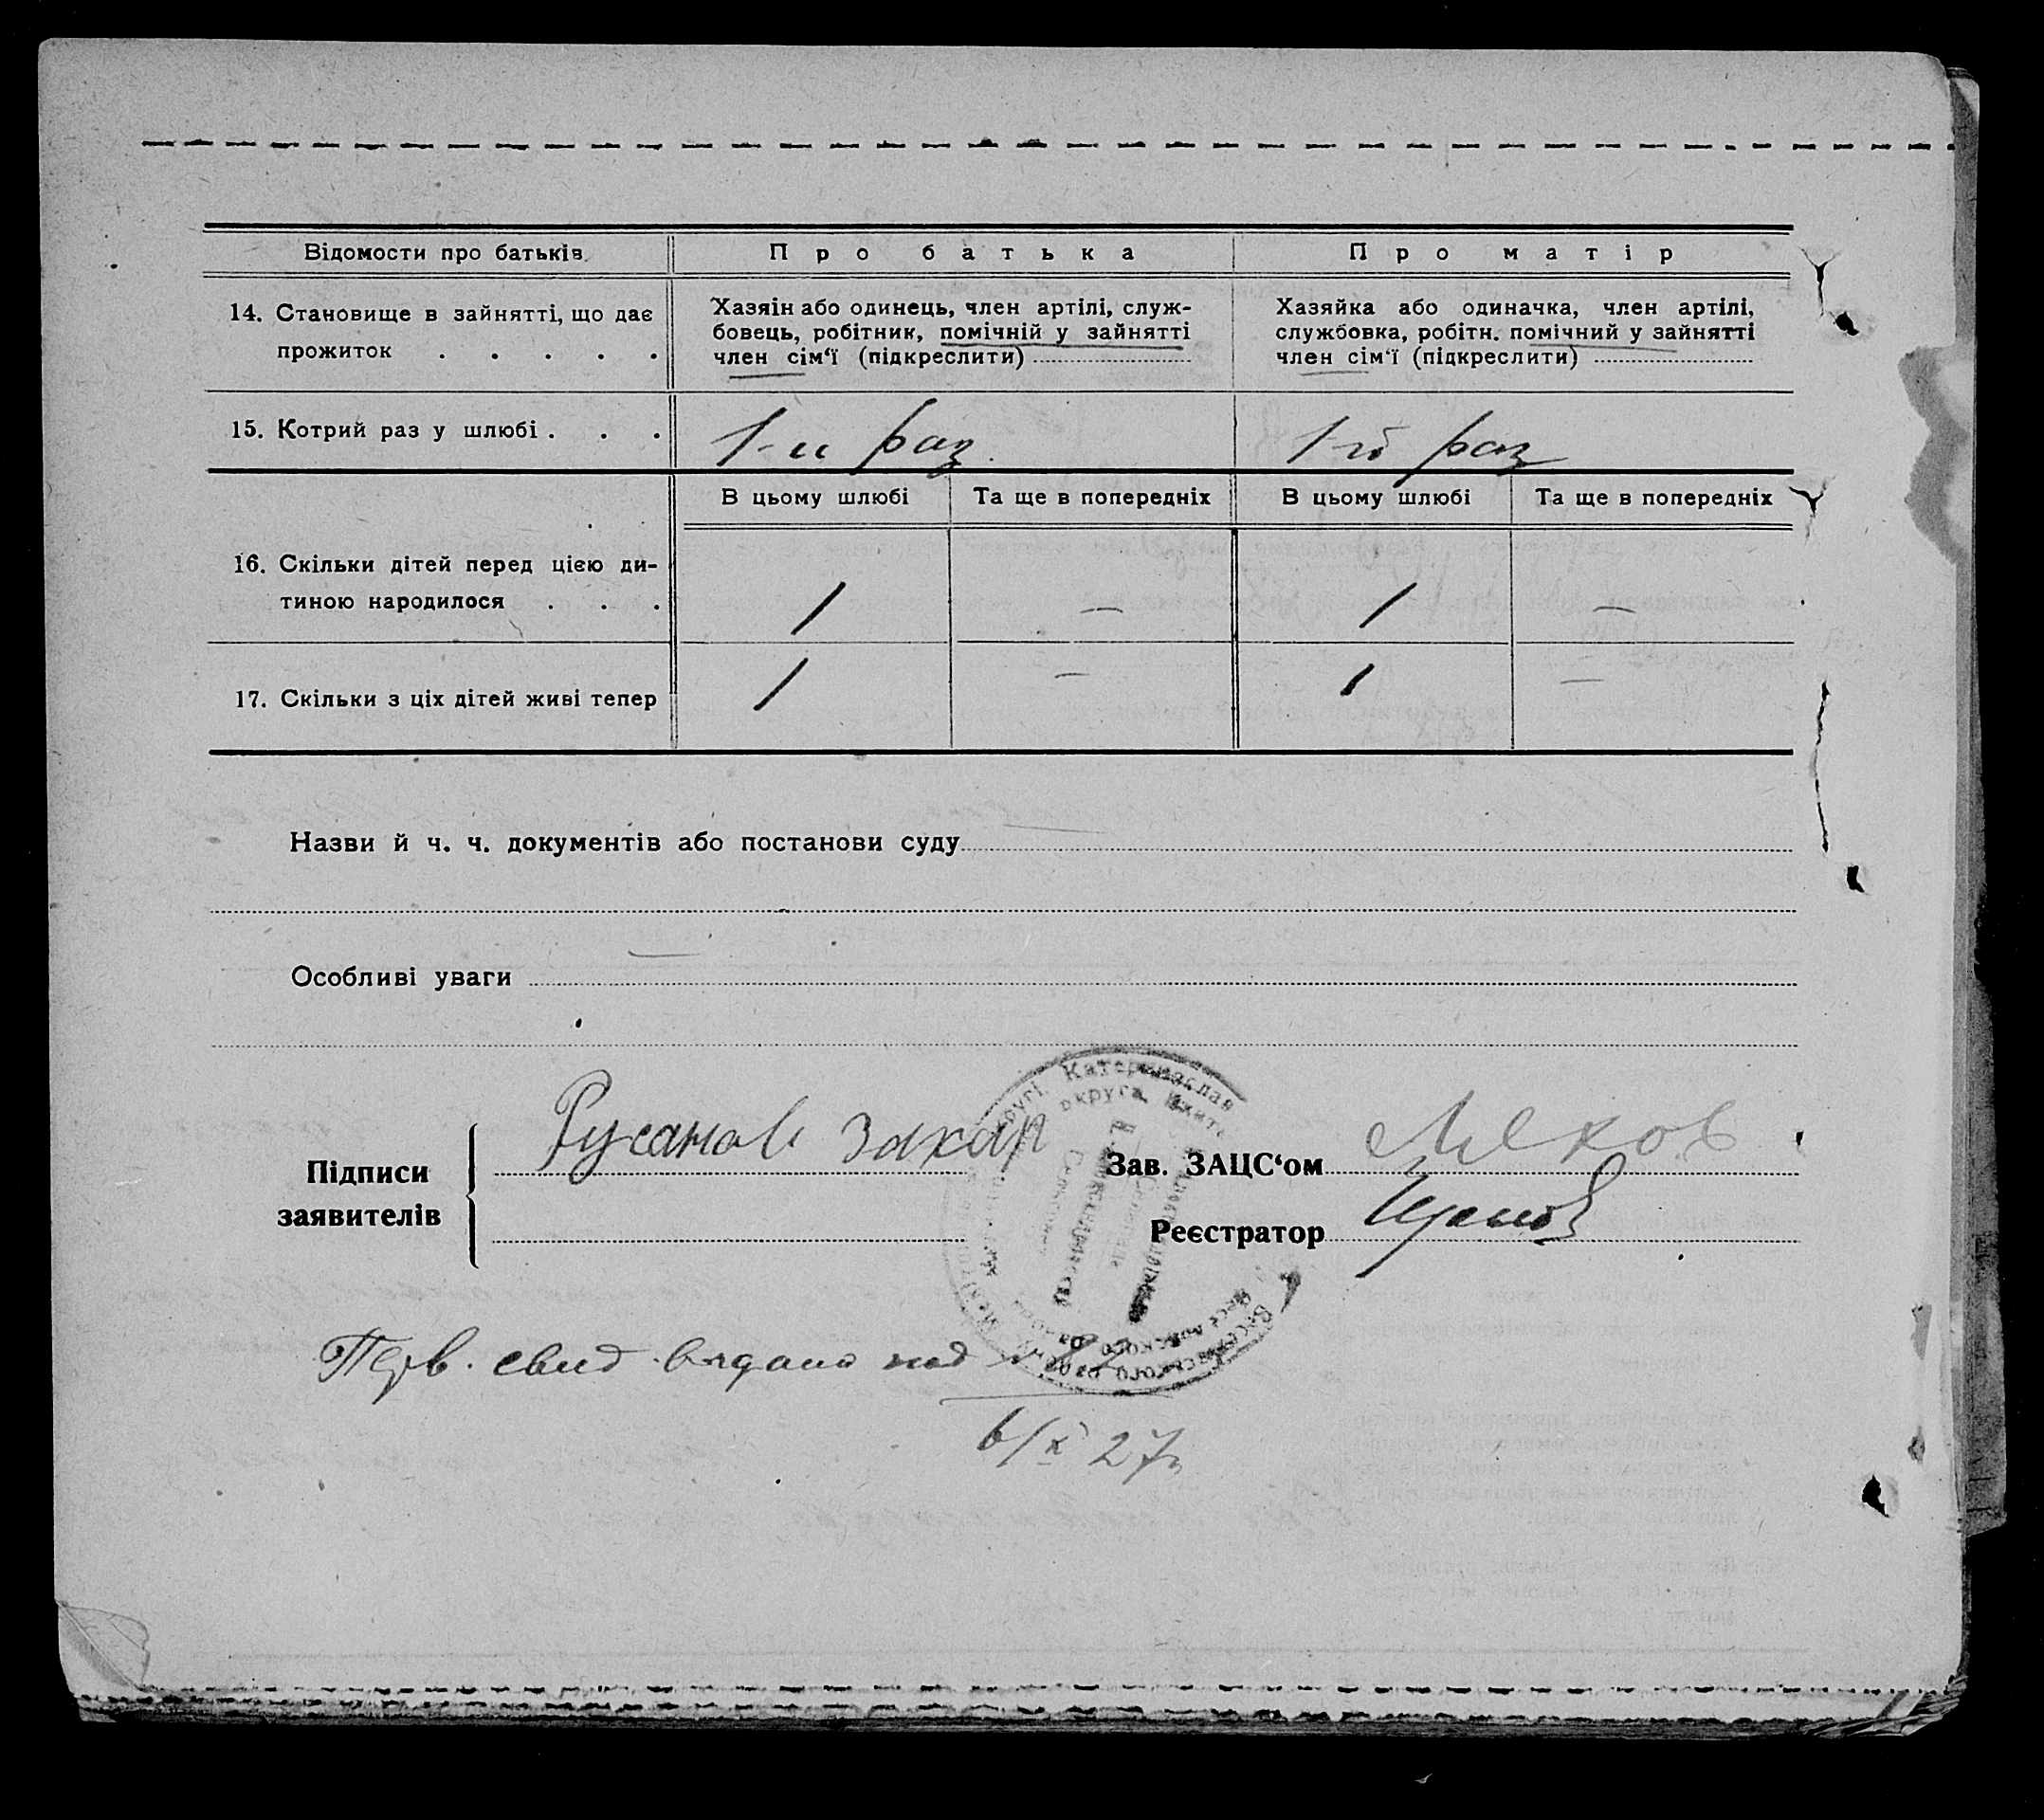 Відомости про батьків. Про батька Про матір
14. Становище в зайнятті, що дає
прожиток . . . . .
Хазяін або одинець, член артілі, служ-
бовець, робітник, помічній у зайнятті
член сім‘ї (підкреслити)
Хазяйка або одиначка, член артілі,
службовка, робітн. помічний у зайнятті
член сім‘ї (підкреслити)
15. Котрий раз у шлюбі . . . 1-й раз 1-й раз
В цьому шлюбі Та ще в попередніх В цьому шлюбі Та ще в попередніх
16. Скільки дітей перед цією ди-
тиною народилося . . . 1 — 1 —
17. Скільки з ціх дітей живі тепер 1 — 1 —
Назви й ч. ч. документів або постанови суду
Особливі уваги —
Підписи
заявителів
Русанов Захар
Зав. ЗАЦС‘ом
Реєстратор
Катеринослав
округа
свид видано под
6/X 27